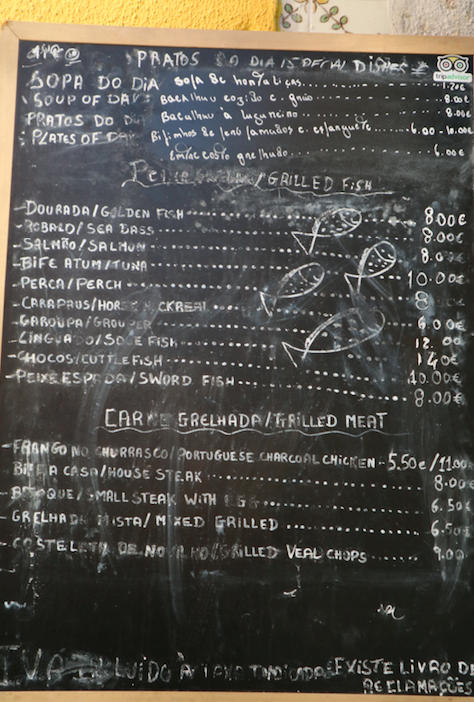 PRATOS DO DIA
tripadvisor
SOPA DO DIA Sopa de hortaliças 1.20€
SOUP OF DAY Bacalhau cozido e grão 8.00€
PRATOS DO DIA Bacalhau à 8.00€
PLATES OF DAY e esparguete 6.00
Entrecosto grelhado 6.00€
GRILLED FISH
- DOURADA/GOLDEN FISH 8.00€
- ROBALO/SEA BASS 8.00€
- SALMÃO/SALMON 8.00€
- BIFE ATUM/TUNA 10.00€
- PERCA/PERCH 8
- CARAPAUS/HORSE MACKREAL 6.00€
- GAROUPA/GROUPER 12.00
- LINGUADO/SOLE FISH 14.0€
- CHOCOS/CUTTLE FISH 10.00€
- PEIXE ESPADA/SWORD FISH 8.00€
CARNE GRELHADA/GRILLED MEAT
- FRANGO NO CHURRASCO/PORTUGUESE CHARCOAL CHICKEN 5.50€/11.00
BIFE A CASA/HOUSE STEAK 8.00€
- BITOQUE/SMALL STEAK WITH EGG 6.50€
- GRELHADA MISTA/MIXED GRILLED 6.50€
- COSTELETA DE NOVILHO/GRILLED VEAL CHOPS 9.00
IVA INCLUÍDO À TAXA EXISTE LIVRO DE
RECLAMAÇÕES